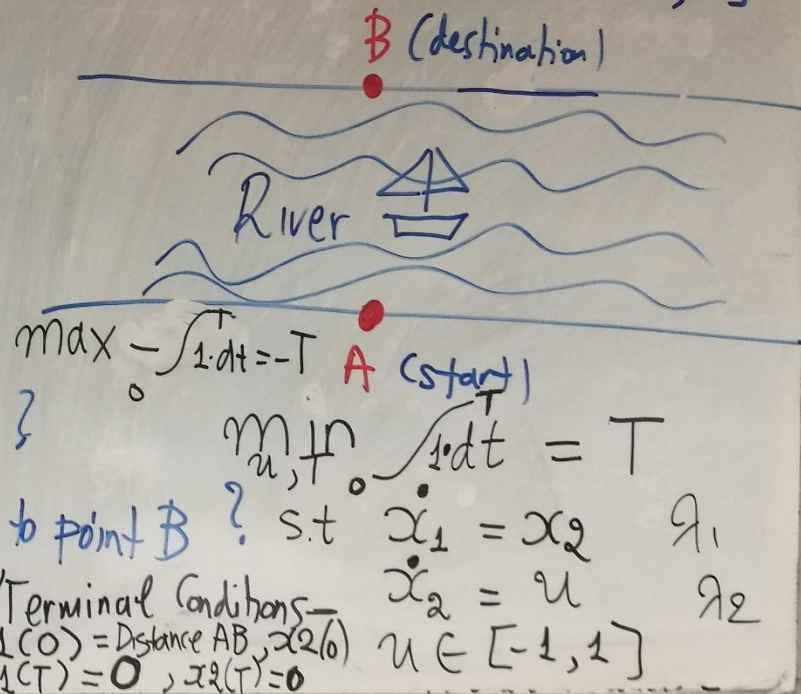 B (destination)
River
max - ∫₀ᵀ 1·dt = -T
A (start)
?
min u,T ∫₀ᵀ 1·dt = T
to point B ? s.t ẋ1 = x2 λ1
Terminal Conditions— ẋ2 = u λ2
1(0) = Distance AB, x2(0) u ∈ [-1, 1]
1(T) = 0, x2(T) = 0